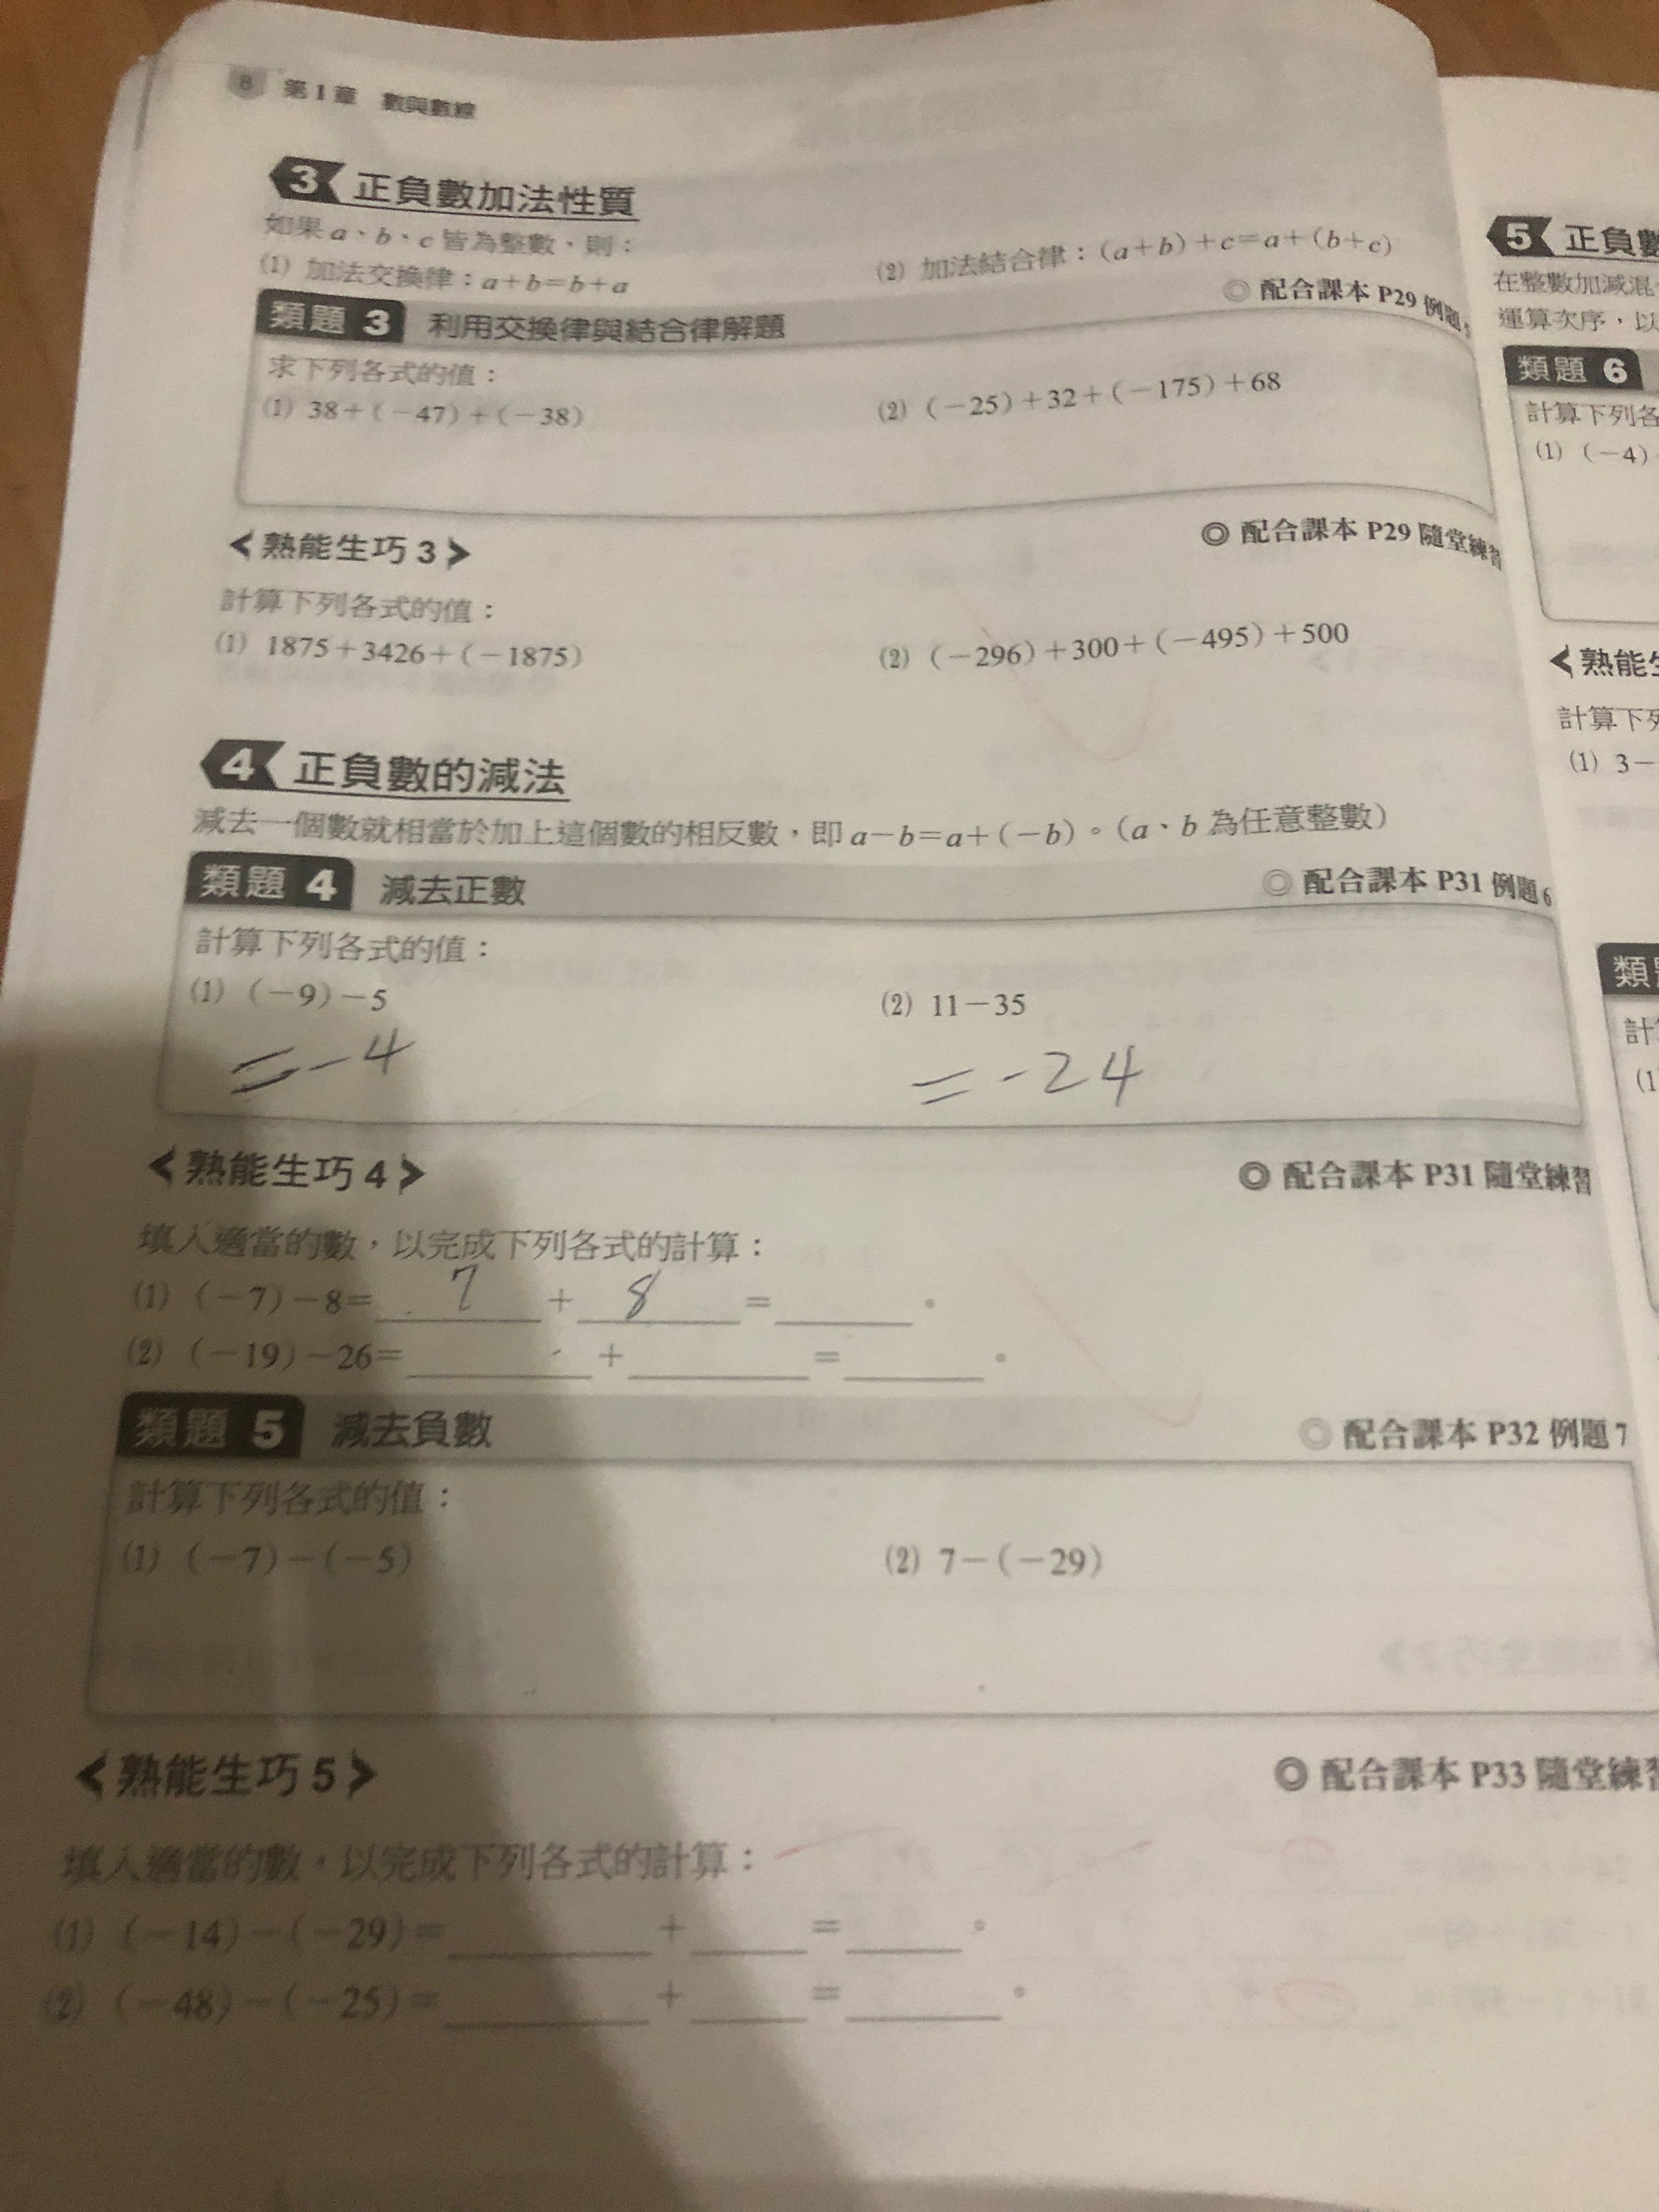 8 第1章 數與數線
3 正負數加法性質
如果a、b、c皆為整數，則：
(1) 加法交換律：a+b=b+a
(2) 加法結合律：(a+b)+c=a+(b+c)
類題 3 利用交換律與結合律解題
◎配合課本 P29 例題5
求下列各式的值：
(1) 38+(-47)+(-38)
(2) (-25)+32+(-175)+68
<熟能生巧3>
◎配合課本 P29 隨堂練習
計算下列各式的值：
(1) 1875+3426+(-1875)
(2) (-296)+300+(-495)+500
4 正負數的減法
減去一個數就相當於加上這個數的相反數，即a-b=a+(-b)。(a、b為任意整數)
類題 4 減去正數
◎配合課本 P31 例題6
計算下列各式的值：
(1) (-9)-5
(2) 11-35
=-4
=-24
<熟能生巧4>
◎配合課本 P31 隨堂練習
填入適當的數，以完成下列各式的計算：
(1) (-7)-8= 7 + 8 = 。
(2) (-19)-26= + = 。
類題 5 減去負數
◎配合課本 P32 例題7
計算下列各式的值：
(1) (-7)-(-5)
(2) 7-(-29)
<熟能生巧5>
◎配合課本 P33 隨堂練習
填入適當的數，以完成下列各式的計算：
(1) (-14)-(-29)= + = 。
(2) (-48)-(-25)= + = 。
5 正負數
在整數加減混
運算次序，以
類題 6
計算下列各
(1) (-4)
<熟能生
計算下列
(1) 3-
類
計
(1